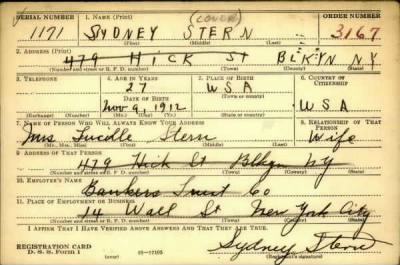 SERIAL NUMBER 1. NAME (Print) (COVER) ORDER NUMBER
1171 SYDNEY STERN 3167
(First) (Middle) (Last)
2. ADDRESS (Print)
479 HICK ST BLKYN NY
(Number and street or R. F. D. number) (Town) (County) (State)
3. TELEPHONE 4. AGE IN YEARS 5. PLACE OF BIRTH 6. COUNTRY OF CITIZENSHIP
27 USA
DATE OF BIRTH (Town or county)
Nov 9, 1912 USA
(Exchange) (Number) (Mo.) (Day) (Yr.) (State or country)
7. NAME OF PERSON WHO WILL ALWAYS KNOW YOUR ADDRESS 8. RELATIONSHIP OF THAT PERSON
Mrs Lucille Stern Wife
(Mr., Mrs., Miss) (First) (Middle) (Last)
9. ADDRESS OF THAT PERSON
479 Hick St Blkyn NY
(Number and street or R. F. D. number) (Town) (County) (State)
10. EMPLOYER'S NAME
Bankers Trust Co
11. PLACE OF EMPLOYMENT OR BUSINESS
14 Wall St New York City
(Number and street or R. F. D. number) (Town) (County) (State)
I AFFIRM THAT I HAVE VERIFIED ABOVE ANSWERS AND THAT THEY ARE TRUE.
REGISTRATION CARD
D. S. S. Form 1 Sydney Stern
(Registrant's signature)